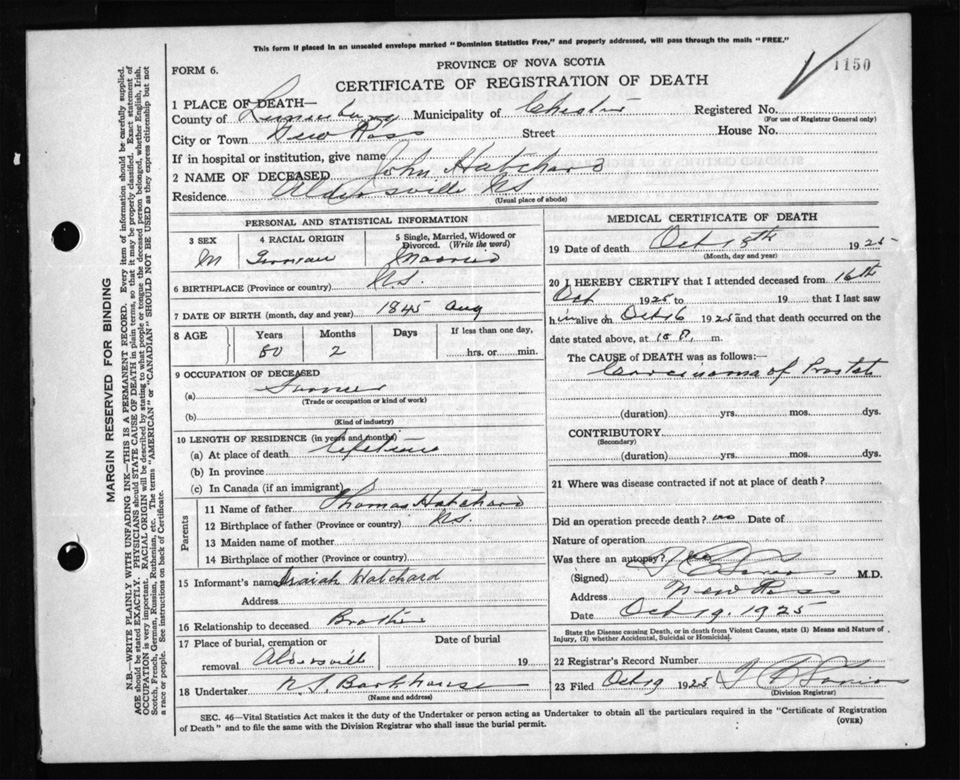 This form if placed in an unsealed envelope marked "Dominion Statistics Free," and properly addressed, will pass through the mails "FREE."
PROVINCE OF NOVA SCOTIA
FORM 6.
1150
CERTIFICATE OF REGISTRATION OF DEATH
1 PLACE OF DEATH—
County of Lunenburg Municipality of Chester Registered No.
(For use of Registrar General only)
City or Town New Ross Street House No.
If in hospital or institution, give name
2 NAME OF DECEASED John Hatchard
Residence Aldersville NS
(Usual place of abode)
PERSONAL AND STATISTICAL INFORMATION
3 SEX 4 RACIAL ORIGIN 5 Single, Married, Widowed or Divorced. (Write the word)
M German Married
6 BIRTHPLACE (Province or country) NS.
7 DATE OF BIRTH (month, day and year) 1845 Aug
8 AGE Years Months Days If less than one day,
80 2 hrs. or min.
9 OCCUPATION OF DECEASED
(a) Farmer
(Trade or occupation or kind of work)
(b)
(Kind of industry)
10 LENGTH OF RESIDENCE (in years and months)
(a) At place of death lifetime
(b) In province
(c) In Canada (if an immigrant)
Parents
11 Name of father Thomas Hatchard
12 Birthplace of father (Province or country) NS.
13 Maiden name of mother
14 Birthplace of mother (Province or country)
15 Informant's name Isaiah Hatchard
Address
16 Relationship to deceased Brother
17 Place of burial, cremation or removal Aldersville Date of burial 19
18 Undertaker N. S. Barkhouse
(Name and address)
MEDICAL CERTIFICATE OF DEATH
19 Date of death Oct 18th 1925
(Month, day and year)
20 I HEREBY CERTIFY that I attended deceased from 16th
Oct 1925 to 19 that I last saw
him alive on Oct 16 1925 and that death occurred on
date stated above, at 10 P. m.
The CAUSE of DEATH was as follows:—
Carcinoma of Prostate
(duration) yrs. mos. dys.
CONTRIBUTORY
(Secondary)
(duration) yrs. mos. dys.
21 Where was disease contracted if not at place of death?
Did an operation precede death? no Date of
Nature of operation
Was there an autopsy? no
(Signed) M.D.
Address New Ross
Date Oct 19. 1925
State the Disease causing Death, or in death from Violent Causes, state (1) Means and Nature of
Injury, (2) whether Accidental, Suicidal or Homicidal.
22 Registrar's Record Number
23 Filed Oct 19 1925
(Division Registrar)
SEC. 46—Vital Statistics Act makes it the duty of the Undertaker or person acting as Undertaker to obtain all the particulars required in the "Certificate of Registration
of Death" and to file the same with the Division Registrar who shall issue the burial permit.
(OVER)
MARGIN RESERVED FOR BINDING
N.B.—WRITE PLAINLY WITH UNFADING INK—THIS IS A PERMANENT RECORD. Every item of information should be carefully supplied.
AGE should be stated EXACTLY. PHYSICIANS should STATE CAUSE OF DEATH in plain terms, so that it may be properly classified. Exact statement of
OCCUPATION is very important. RACIAL ORIGIN will be described by stating to what people or tongue the deceased person belonged, whether English, Irish,
Scotch, French, German, Russian, Ruthenian, etc. The terms "AMERICAN" or "CANADIAN" SHOULD NOT BE USED as they express citizenship but not
a race or people. See instructions on back of Certificate.